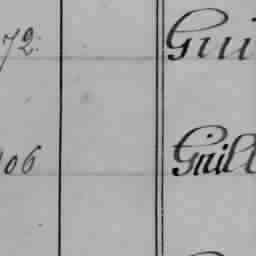 72. Gui
06 Guill